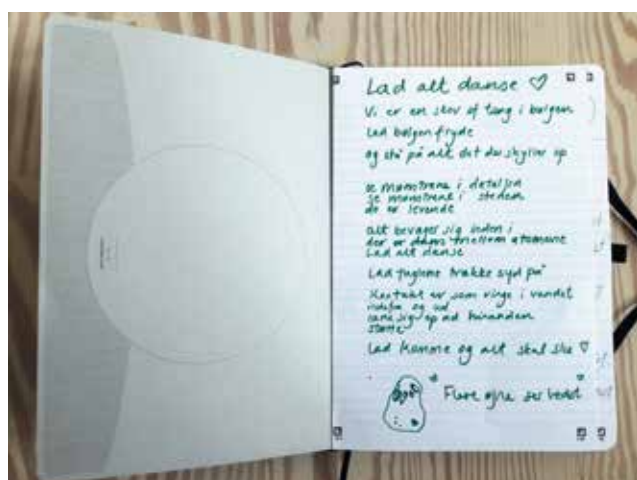 Lad alt danse ♡
Vi er en skov af tang i bølgen
Lad bølgen fryde
og stå på alt det der skyller op
se mønstrene i detaljen
se mønstrene i stedem
de er levende
alt bevæger sig inden i
der er dans mellem atomerne
Lad alt danse
Lad fuglene trække syd på
Kontakt er som ringe i vandet
indefra og ud
læne sig op ad hinanden
støtte
Lad komme og alt skal ske ♡
Flere øjne ser bedst